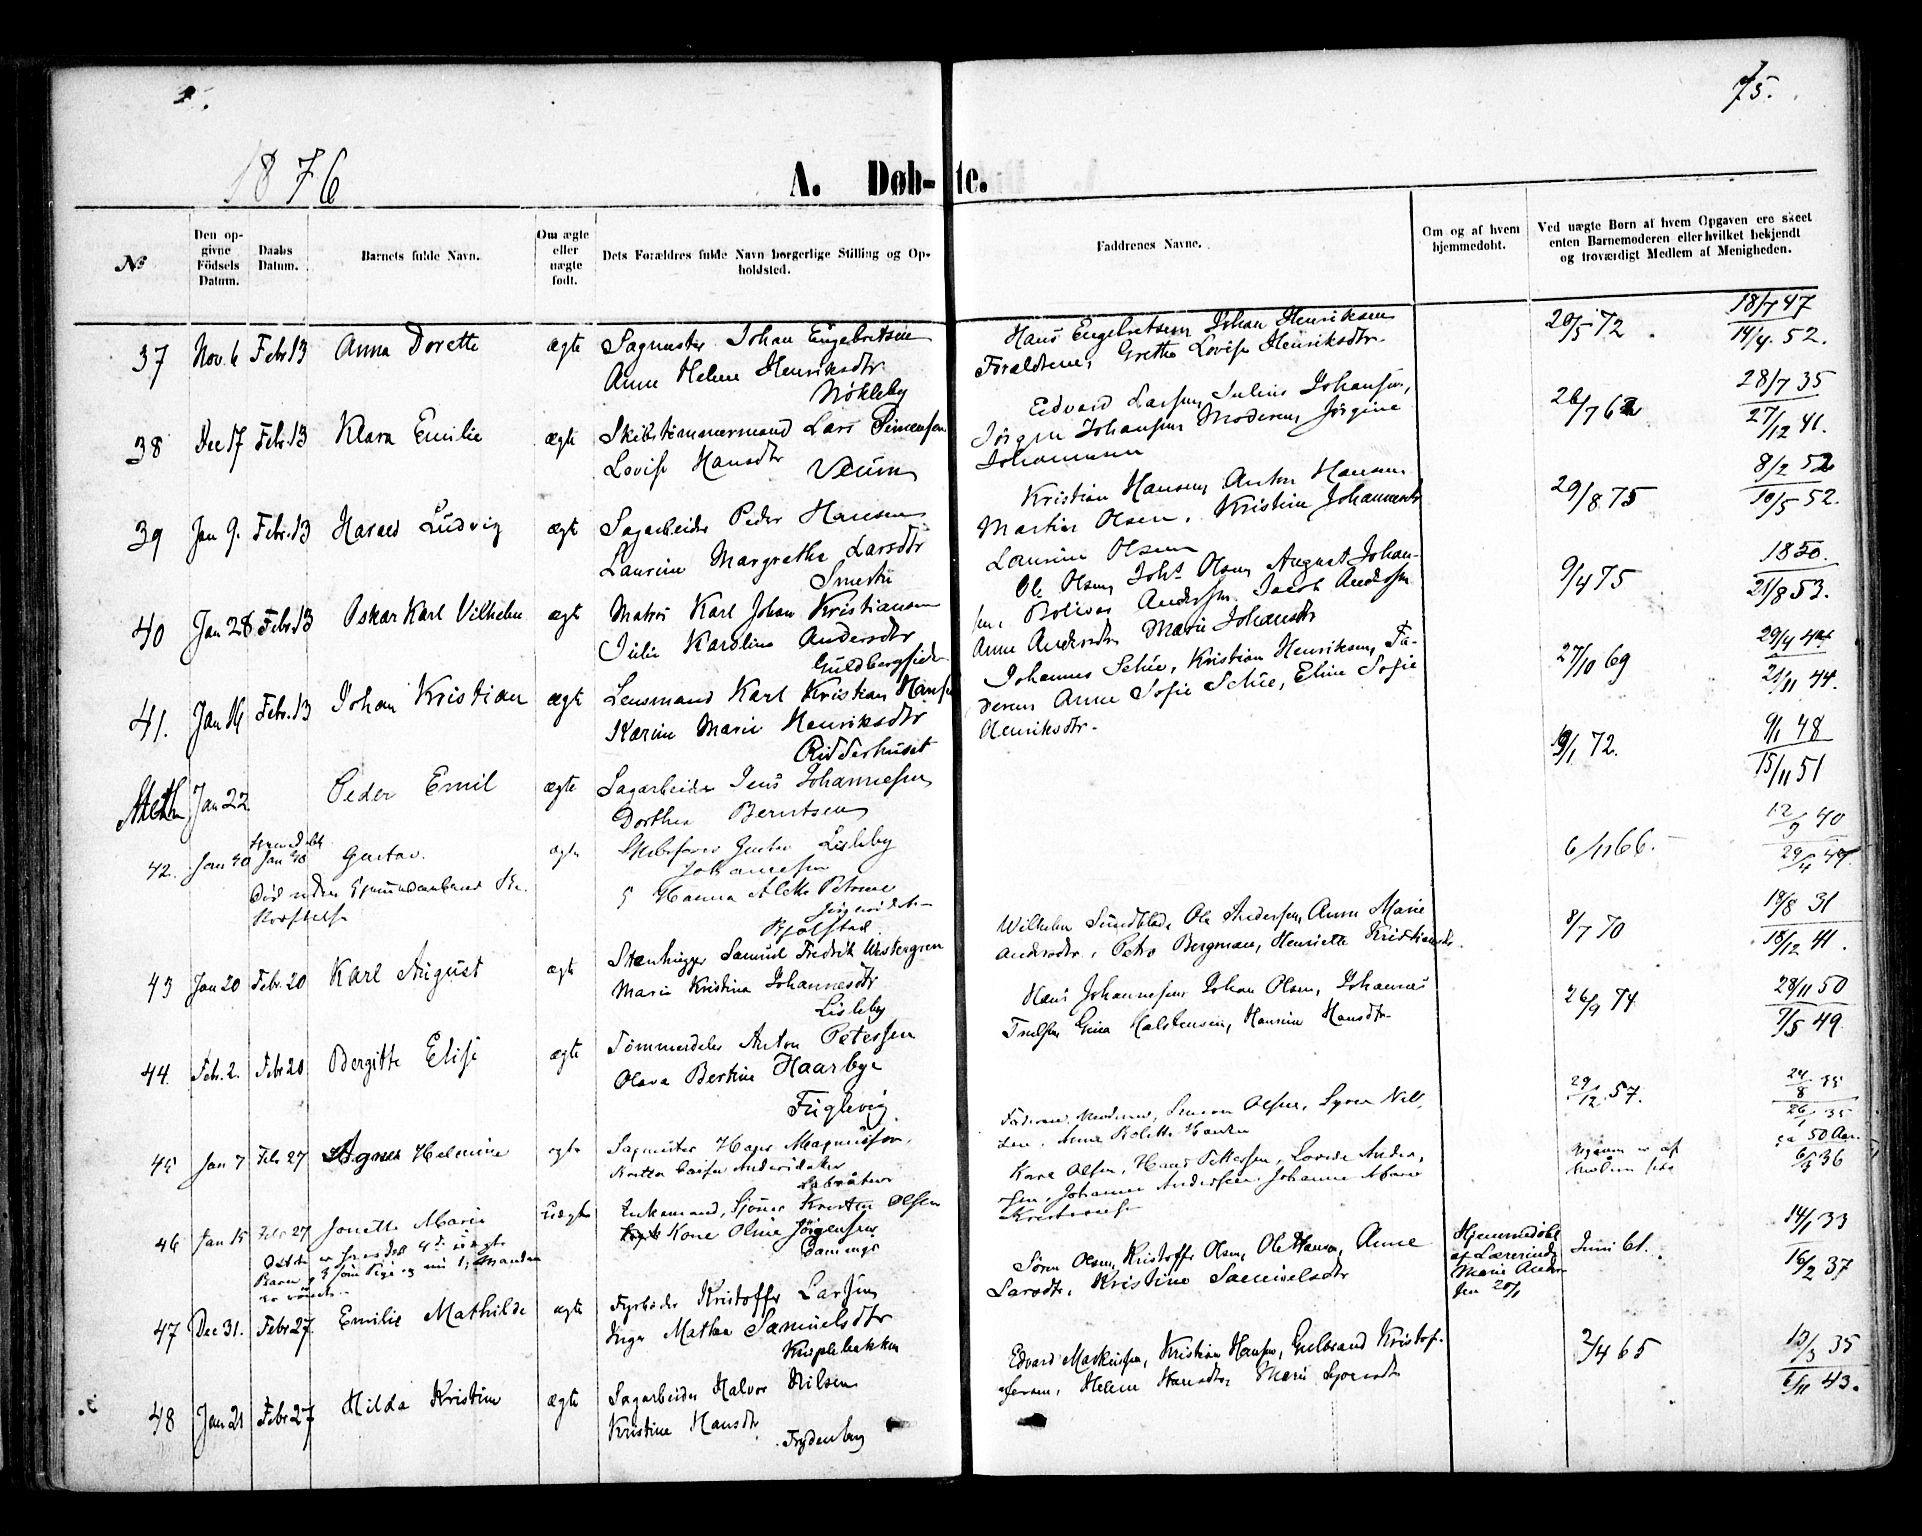 75.
1876
A. Døb-te.
No
Den opgivne Födsels Datum.
Daabs Datum.
Barnets fulde Navn.
Om ægte eller uægte født.
Dets Forældres fulde Navn borgerlige Stilling og Opholdsted.
Faddrenes Navne.
Om og af hvem hjemmedøbt.
Ved uægte Børn af hvem Opgaven ere skeet enten Barnemoderen eller hvilket bekjendt og troværdigt Medlem af Menigheden.
37 Nov. 6 Febr. 13 Anna Dorette ægte Sagmester Johan Engebretsen
Anne Helene Henriksdtr
Nökleby
Hans Engebretsen, Johan Henriksen
Forældrene, Grethe Lovise Henriksdtr.
20/5 72. 18/7 47
14/4. 52.
38 Dec 17 Febr. 13 Klara Emilie ægte Skibstömmermand Lars Simensen
Lovise Hansdtr Veum
Edvard Larsen, Julius Johansen,
Jörgen Johansen, Moderen, Jörgine
Johannesen
26/7 62 28/7 35
27/12 41.
39 Jan 9. Febr. 13 Harald Ludvig ægte Sagarbeider Peder Hansen
Laurine Margrethe Larsdtr
Kristian Hansen, Anton Hansen
Martin Olsen, Kristine Johannesdtr
Laurine Olsen
29/8 75 8/2 52
10/5 52.
40 Jan 28 Febr. 13 Oskar Karl Vilhelm ægte Matros Karl Johan Kristiansen
Julie Karoline Andersdtr
Guldbergsiden
Ole Olsen, Johs Olsen, August Johan-
sen, Bolivar Andersen, Jacob Andersen
Anne Andersdtr, Marie Johansdtr
9/4 75 1850.
21/8 53.
41. Jan 16 Febr. 13 Johan Kristian ægte Lensmand Karl Kristian Hansen
Karine Marie Henriksdtr
Ridderhuset
Johannes Schie, Kristian Henriksen, Fa-
deren, Anne Sofie Schie, Eline Sofie
Henriksdtr.
27/10 69 29/4 44
21/11 44.
Meth. Jan 22 Peder Emil ægte Sagarbeider Jens Johannesen
Dorthea Berntsen
9/1 72. 9/1 48
15/11 51
42. Jan 30 Gustav. ægte Skibsfører Gustav Lisleby
Johannesen
Hanna Aletta Petrine
Bjølstad.
6/11 66. 12/9 40
43 Jan 20 Febr. 20 Karl August ægte Stenhugger Samuel Fredrik Westergren
Marie Kristina Johannesdtr
Lisleby
Wilhelm Sundblad, Ole Andersen, Anne Marie
Andersdtr, Petro Bergman, Henriette Kristiansdtr.
8/7 70 18/8 31
18/12 41.
44. Feb. 2. Febr 20 Bergitte Elise ægte Tömmerdeler Anton Petersen
Olava Bertine Haarbye
Fuglevig.
Hans Johannesen, Johan Olsen, Johannes
Gina Halstensen, Hansine Hansdtr
26/9 74 28/11 50
7/5 49.
45 Jan 7 Febr 27 Agnes Helmine ægte Sagmester Hans Magnussen.
Faderen, Moderen, Simon Olsen, Syver Nil-
sen, Anne Bolette Hansen
29/12 57. 24/8 35
26/1 35
46 Jan 15 Febr 27 Jonette Marie uægte Enkemand, Sjömand Kresten Olsen
Kone Oline Jörgensen
Damyr
Karl Olsen, Hans Pettersen, Lovise Ander-
sen, Johanne Andersen, Johanne Marie
Kristensen
Opgaven er af
ca 50 Aar.
6/3 36
47 Dec 31. Febr 27. Emilie Mathilde ægte Fyrböder Kristoffer Larsen
Inger Mathea Samuelsdtr
Krosplebakken
Sören Olsen, Kristoffer Olsen, Ole Hansen, Anne
Larsdtr, Kristine Samuelsdtr
Hjemmedöbt
af Lærerinde
Marie Ander-
sen 20/1
Juni 61. 14/1 33
16/2 37
48 Jan 21 Febr 27 Hilda Kristine ægte Sagarbeider Halvor Nilsen
Kristine Hansdtr
Frydenberg
Edvard Markussen, Kristian Hansen, Gulbrand Kristof-
fersen, Helene Hansdtr, Marie
2/4 65 13/3 35
6/11 43.